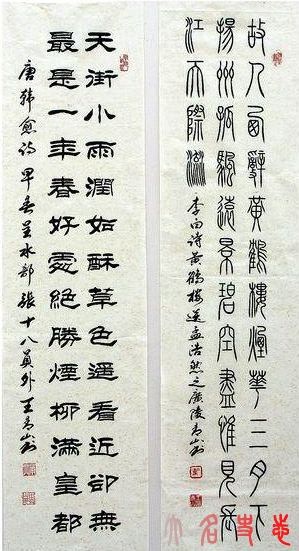 故人西辭黃鶴樓煙華三月下
揚州孤颿遠景碧空盡惟見長
江天際流
李白诗黄鹤楼送孟浩然之廣陵
天街小雨潤如酥草色遥看近卻無
最是一年春好處絕勝煙柳滿皇都
唐韩愈诗早春呈水部張十八員外王